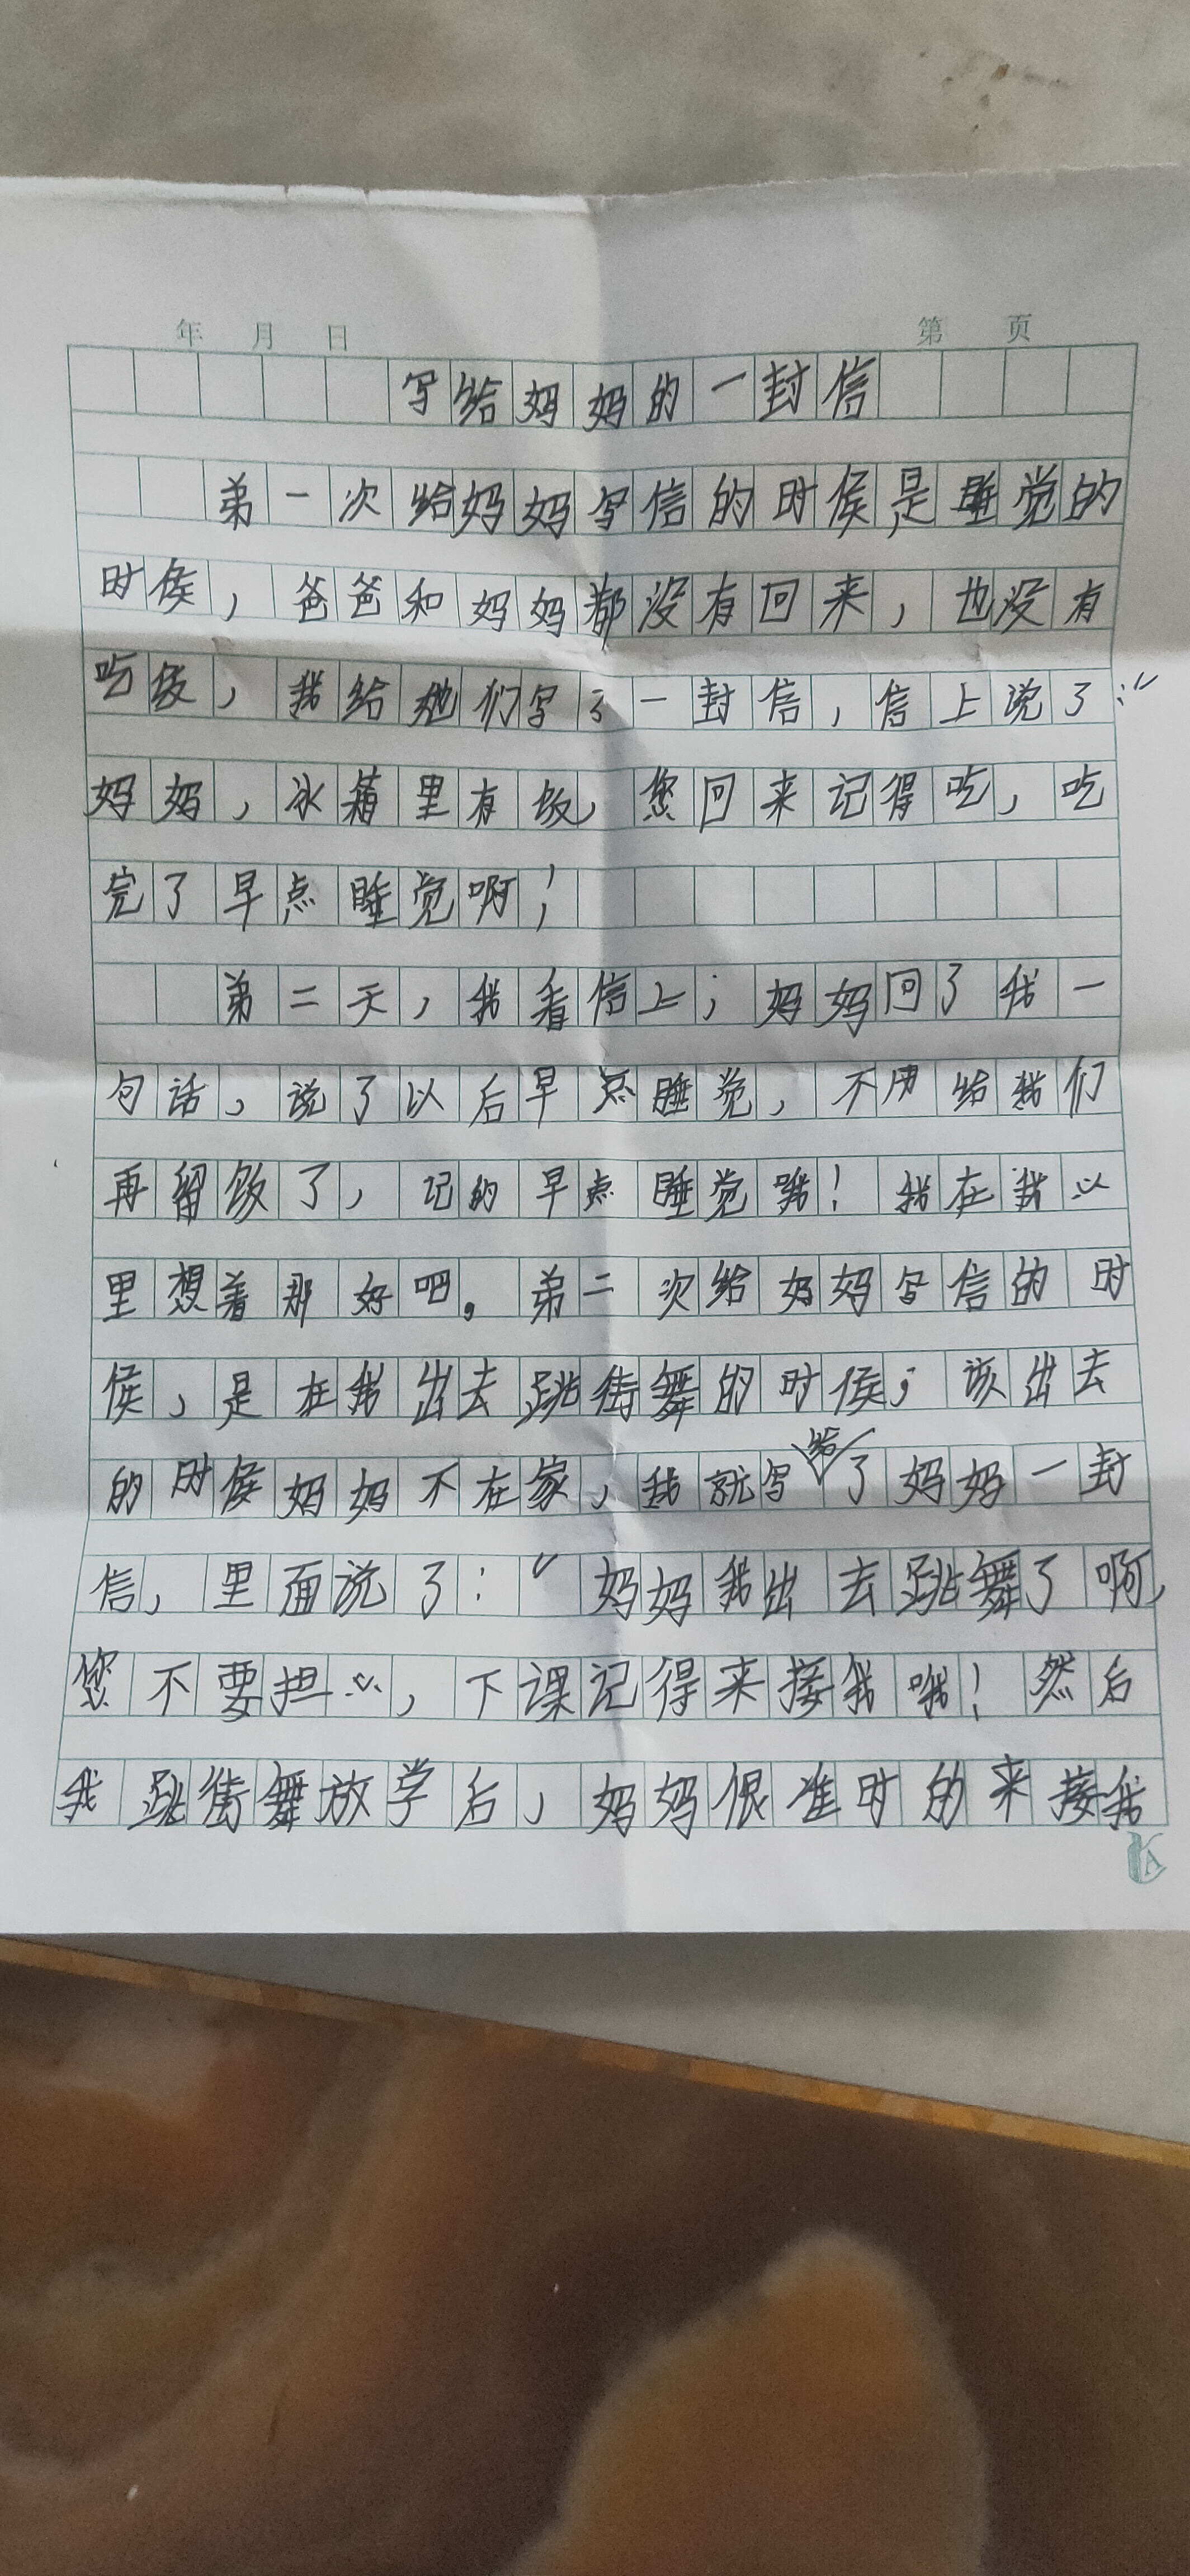 年 月 日 第 页
写给妈妈的一封信
弟一次给妈妈写信的时候是睡觉的
时侯，爸爸和妈妈都没有回来，也没有
吃饭，我给她们写了一封信，信上说了：“
妈妈，冰箱里有饭，您回来记得吃，吃
完了早点睡觉啊！
弟二天，我看信上；妈妈回了我一
句话，说了以后早点睡觉，不用给我们
再留饭了，记的早点睡觉哦！我在我心
里想着那好吧。弟二次给妈妈写信的时
侯，是在我出去跳街舞的时侯；该出去
的时候妈妈不在家，我就写给了妈妈一封
信，里面说了：“妈妈我出去跳舞了啊，
您不要担心，下课记得来接我哦！然后
我跳街舞放学后，妈妈很准时的来接我